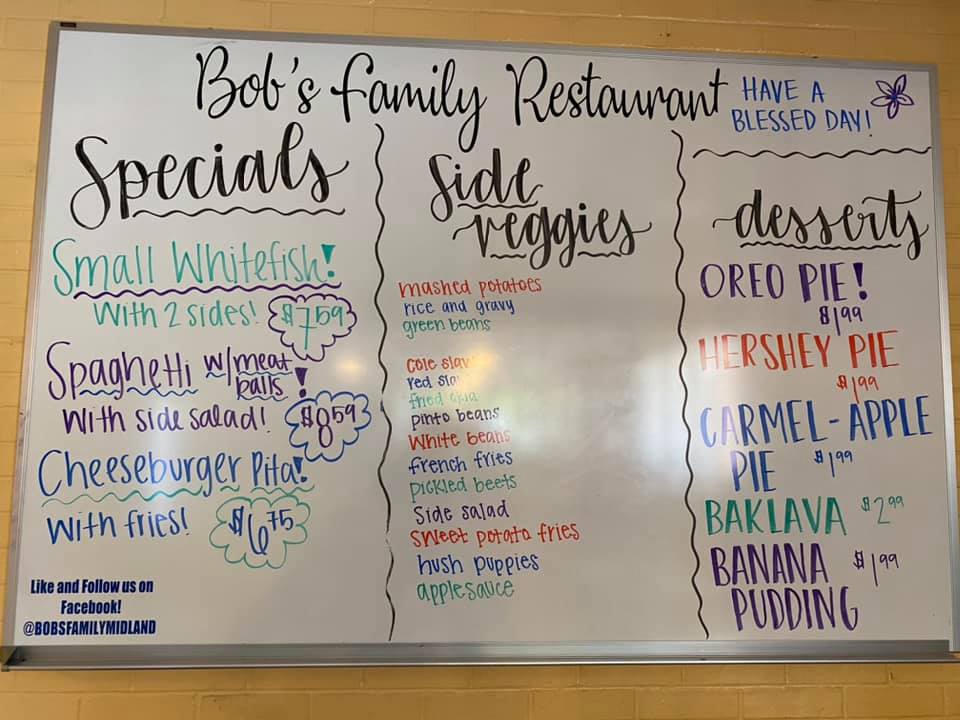 Bob's Family Restaurant
HAVE A
BLESSED DAY!
Specials
Small Whitefish!
With 2 sides! $7.59
Spaghetti w/meat
balls!
With side salad! $8.59
Cheeseburger Pita!
With fries! $6.75
Like and Follow us on
Facebook!
@BOBSFAMILYMIDLAND
Side
veggies
mashed potatoes
rice and gravy
green beans
Cole slaw
red slaw
fried okra
pinto beans
White beans
french fries
pickled beets
Side salad
Sweet potato fries
hush puppies
applesauce
desserts
OREO PIE!
$1.99
HERSHEY PIE
$1.99
CARMEL-APPLE
PIE $1.99
BAKLAVA $2.99
BANANA $1.99
PUDDING